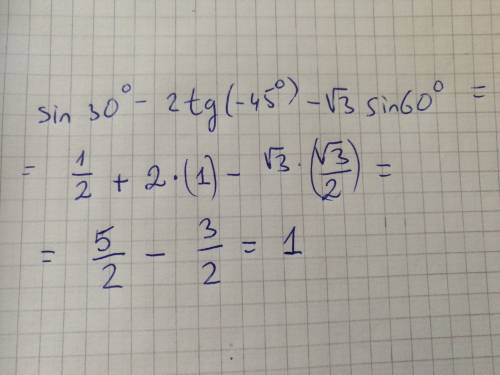 sin 30° - 2tg(-45°) - √3 sin60° =
= 1/2 + 2·(1) - √3·(√3/2) =
= 5/2 - 3/2 = 1